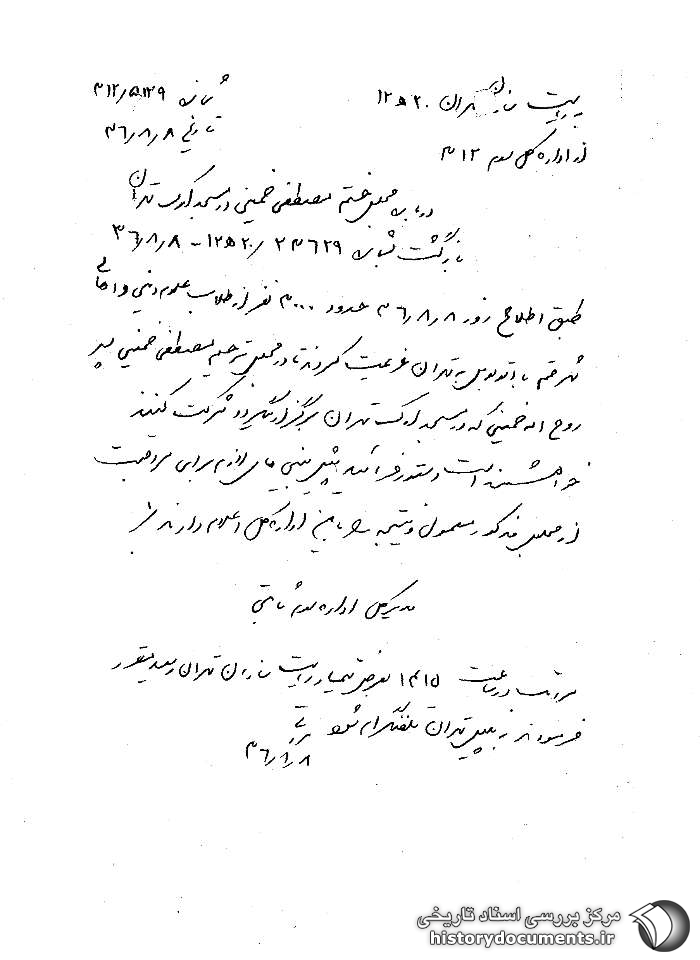 به ریاست سازمان تهران ۲۰ ه‍ ۱۲ شماره ۳۱۲/۵۱۲۹
از اداره کل سوم ۳۱۲ تاریخ ۳۶/۸/۸
درباره مجلس ختم مصطفی خمینی در مسجد ارک تهران
بازگشت شماره ۲۳۶۲۹/ ۲۰ ه‍ ۱۲ - ۳۶/۸/۸
طبق اطلاع روز ۳۶/۸/۸ حدود ۳۰۰۰ نفر از طلاب علوم دینی و اهالی
شهر قم با اتوبوس به تهران عزیمت کردند تا در مجلس ترحیم مصطفی خمینی پسر
روح اله خمینی که در مسجد ارک تهران برگزار میگردد شرکت کنند
خواهشمند است دستور فرمائید پیش بینی های لازم برای مراقبت
از مجلس مذکور معمول و نتیجه را باین اداره کل اعلام دارند
مدیر کل اداره سوم ثابتی
مراتب در ساعت ۱۴۱۵ بعرض تیمسار ریاست سازمان تهران رسید مقرر
فرمودند به پلیس تهران تلفنگرام شود
۳۶/۸/۸
مرکز بررسی اسناد تاریخی
historydocuments.ir